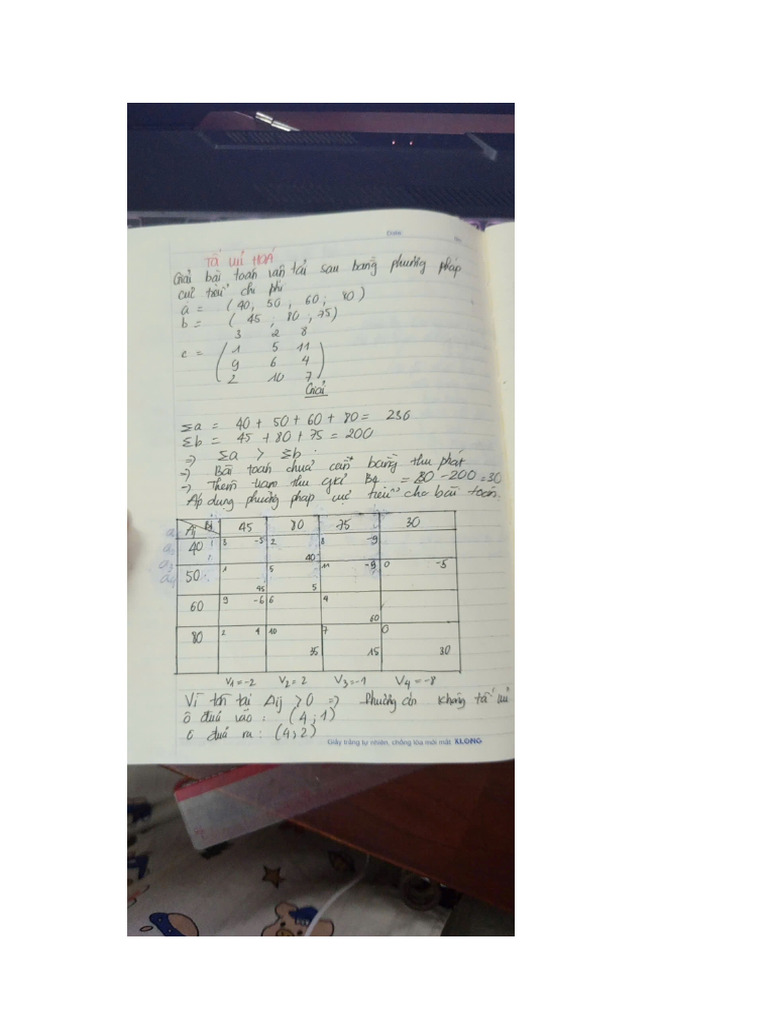 Tối ưu hoá
Giải bài toán vận tải sau bằng phương pháp
cực tiểu chi phí
a = (40, 50, 60, 80)
b = (45, 80, 75)
3 2 8
c = ( 1 5 11 )
9 6 4
2 10 7
Giải
Σa = 40 + 50 + 60 + 80 = 230
Σb = 45 + 80 + 75 = 200
⇒ Σa > Σb
⇒ Bài toán chưa cân bằng thu phát
→ Thêm trạm thu giả B4 = 230 - 200 = 30
Áp dụng phương pháp cực tiểu cho bài toán.
Aij 45 80 75 30
40 3 -5 2 8 -9
40
50 1 5 11 -9 0 -5
45 5
60 9 -6 6 4
60
80 2 4 10 7 0
35 15 30
V1 = -2 V2 = 2 V3 = -1 V4 = -8
Vì tồn tại Δij > 0 ⇒ Phương án không tối ưu
ô đưa vào : (4;1)
ô đưa ra : (4;2)
Giấy trắng tự nhiên, chống lóa mỏi mắt KLONG